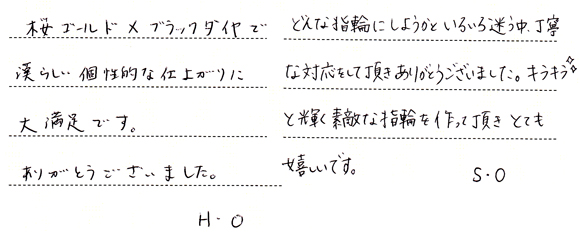 桜ゴールド×ブラックダイヤで
渓らしい個性的な仕上がりに
大満足です。
ありがとうございました。
H.O
どんな指輪にしようかといろいろ迷う中、丁寧
な対応をして頂きありがとうございました。キラキラ
と輝く素敵な指輪を作って頂きとても
嬉しいです。
S.O